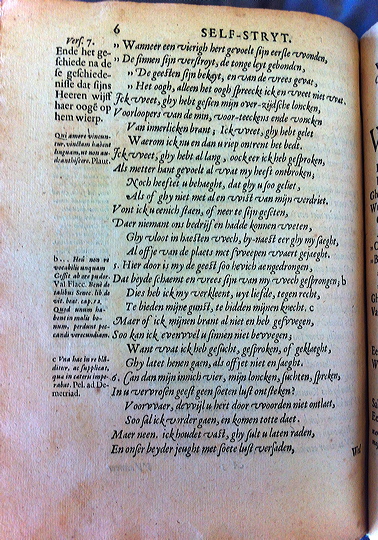 6 SELF-STRYT.
Vers. 7.
Ende het ge-
schiede na de
se geschiede-
nisse dat sijns
Heeren wijff
haer oogē op
hem wierp.
Qui amore vincun-
tur, vinctum habent
linguam, ut non au-
deant hiscere. Plaut.
b... Heu non
vocabilis unquam
Val Flacc.
vit. beat. cap. 12.
Quod unum ha-
bent in malis bo-
num, perdunt pec-
candi verecundiam.
c Vna hac in re blā-
ditur, ac supplicat,
qua in cateris impe-
rabat. Pet. ad De-
metriad.
„ Wanneer een vierigh hert gevoelt sijn eerste wonden,
„ De sinnen sijn verstroyt, de tonge leyt gebonden,
„ De geesten sijn bekayt, en van de vrees gevat,
„ Het oogh, alleen het oogh spreeckt ick en weet niet wat.
Ick weet, ghy hebt gesien mijn over-zijdsche loncken,
Voorloopers van de min, voor-teeckens ende voncken
Van innerlicken brant; Ick weet, ghy hebt gelet
Waerom ick nu en dan u riep ontrent het bedt.
Ick weet, ghy hebt al lang, oock eer ick heb gesproken,
Als metter hant gevoelt al wat my heeft ontbroken,
Noch heeft et u behaeght, dat ghy u soo geliet,
Als of ghy niet met al en wist van mijn verdriet.
Vont ick u eenich staen, of neer te sijn geseten,
Daer niemant ons bedrijf en hadde konnen weten,
Ghy vloot in haesten wech, by-naest eer ghy my saeght,
Al offje van de plaets met sweepen waert gejaeght.
5. Hier door is my de geest soo hevich aengedrongen,
Dat beyde schaemt en vrees sijn van my wech gesprongen; b
Dies heb ick my verkleent, uyt liefde, tegen recht,
Te bieden mijne gunst, te bidden mijnen knecht. c
Maer of ick mijnen brant al niet en heb geswegen,
Soo kan ick evenwel u sinnen niet bewegen;
Want wat ick heb gesicht, gesproken, of geklaeght,
Ghy latet henen gaen, als off jet niet en saeght.
6. Can dan mijn innich vier, mijn loncken, suchten, spreken,
In u vervrosen geest geen soeten lust ontsteken?
Voorwaer, dewijl u hert door woorden niet ontlaet,
Soo sal ick vorder gaen, en komen totte daet.
Maer neen. ick houdet vast, ghy sult u laten raden,
En onser beyder jeught met soete lust versaden,